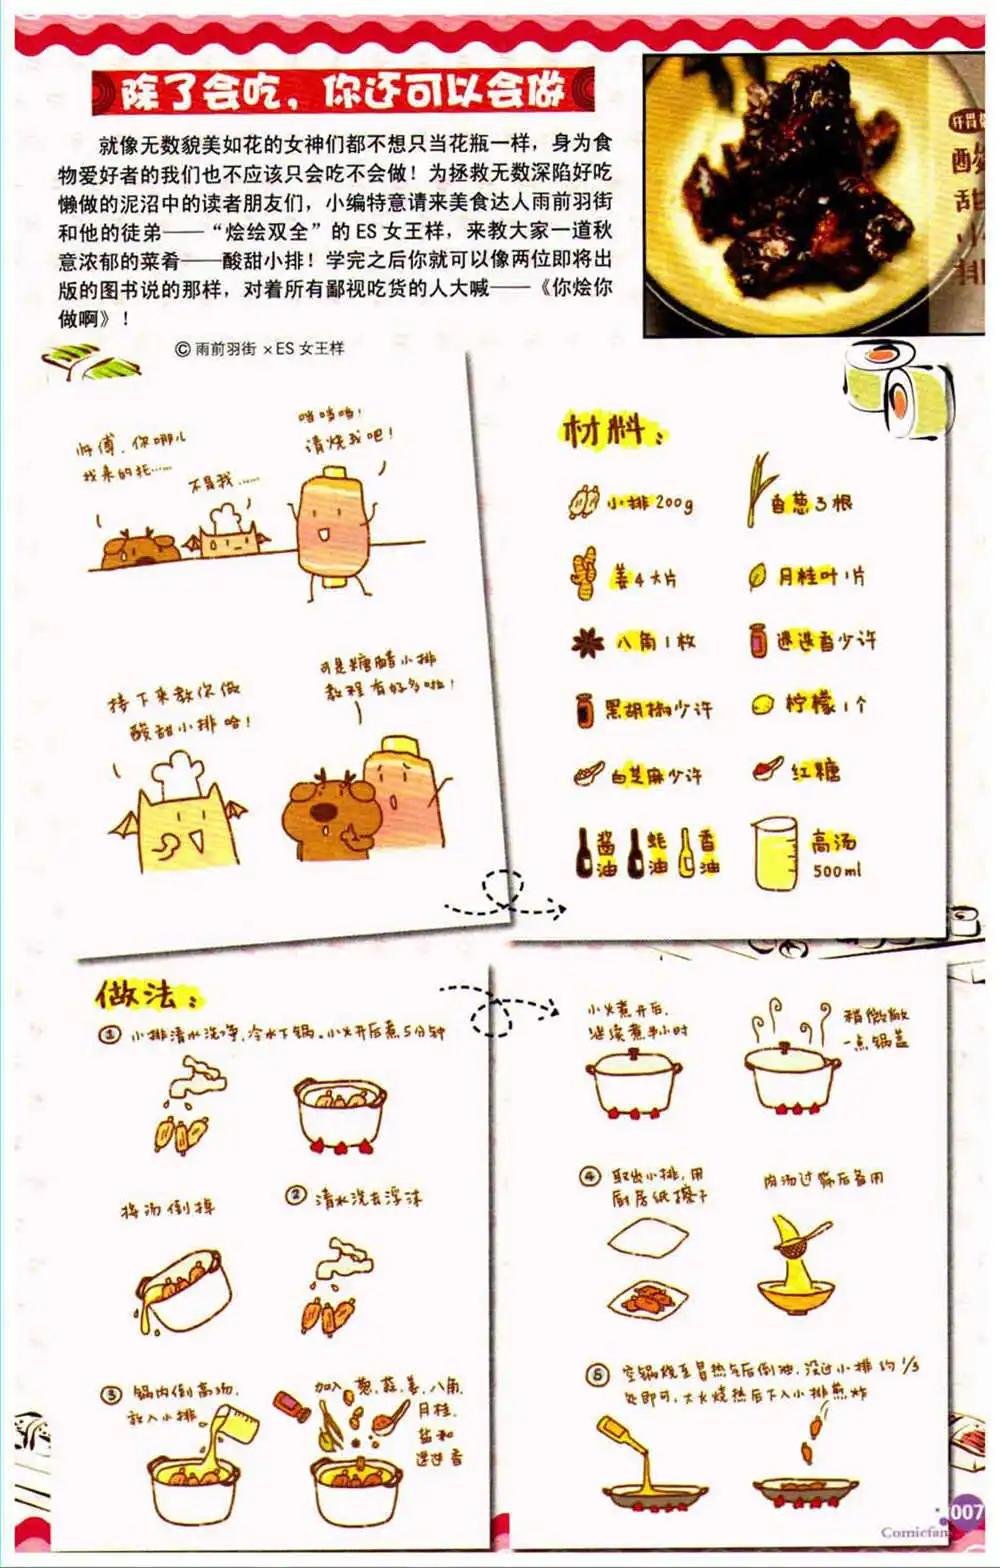 除了会吃，你还可以会做
就像无数貌美如花的女神们都不想只当花瓶一样，身为食
物爱好者的我们也不应该只会吃不会做！为拯救无数深陷好吃
懒做的泥沼中的读者朋友们，小编特意请来美食达人雨前羽街
和他的徒弟——“烩绘双全”的ES女王样，来教大家一道秋
意浓郁的菜肴——酸甜小排！学完之后你就可以像两位即将出
版的图书说的那样，对着所有鄙视吃货的人大喊——《你烩你
做啊》！
© 雨前羽街 ×ES 女王样
师傅，你哪儿
找来的托……
不是我……
当当当！
请烧我吧！
接下来教你做
酸甜小排哈！
可是糖醋小排
教程有好多啦！
材料：
小排 200g
香葱3根
姜4大片
月桂叶1片
八角1枚
迷迭香少许
黑胡椒少许
柠檬1个
白芝麻少许
红糖
酱油
蚝油
香油
高汤
500ml
做法：
① 小排清水洗净，冷水下锅。小火开后煮5分钟
将汤倒掉
② 清水洗去浮沫
③ 锅内倒高汤，
放入小排
加入葱、蒜、姜、八角、
月桂、
盐和
迷迭香
小火煮开后，
继续煮半小时
稍微敞
一点锅盖
④ 取出小排，用
厨房纸擦干
肉汤过筛后备用
⑤ 空锅烧至冒热气后倒油，没过小排约1/3
处即可，大火烧热后下入小排煎炸
007
Comicfan